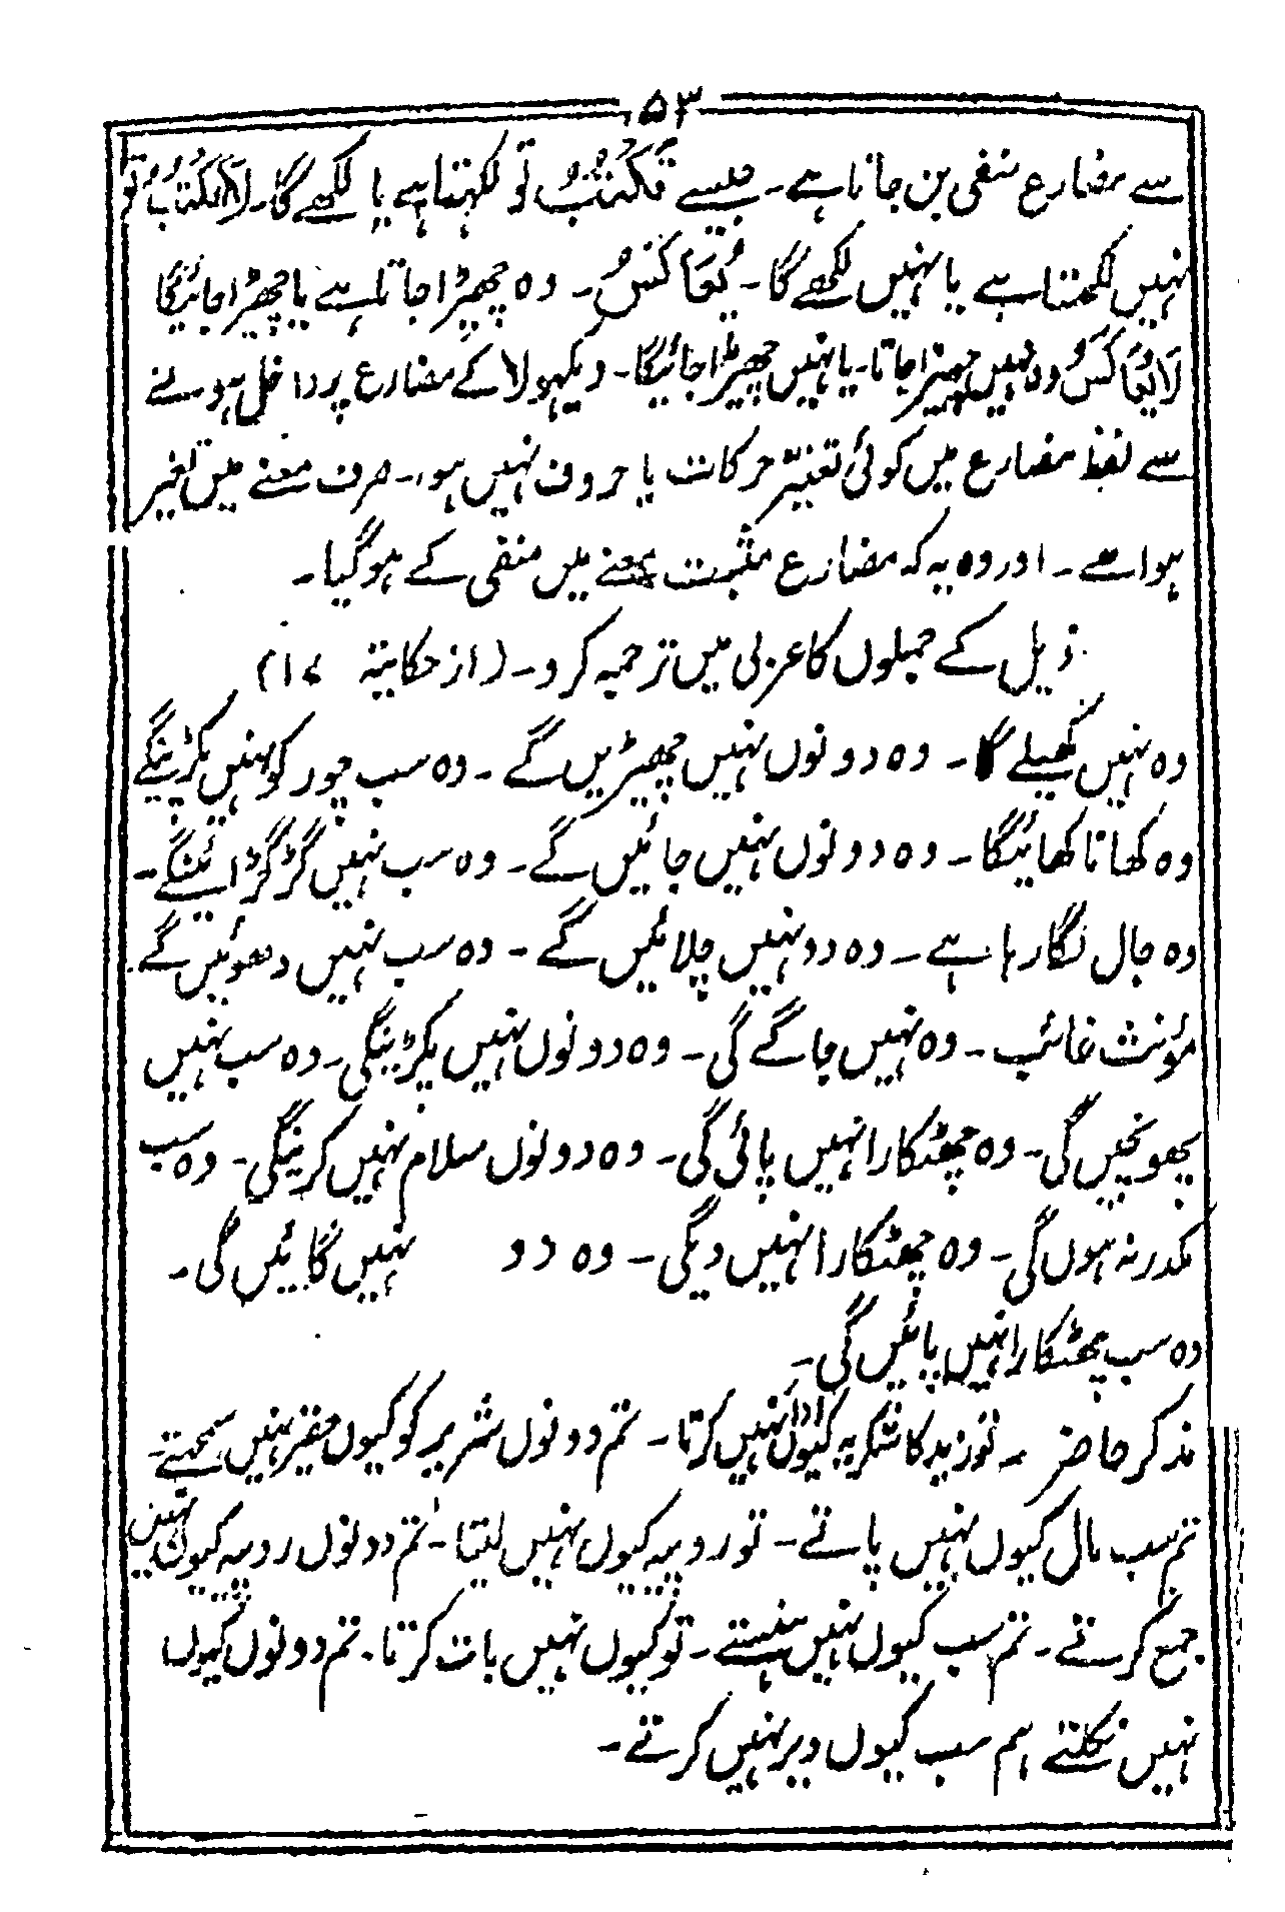 ۵۳
سے مضارع منفی بن جاتا ہے۔ جیسے تَکْتُبُ تو لکھتا ہے یا لکھے گا۔ لَا تَکْتُبُ تو
نہیں لکھتا ہے یا نہیں لکھے گا۔ یُعَاکَسُ۔ وہ چھیڑا جاتا ہے یا چھیڑا جائیگا
لَا یُعَاکَسُ وہ نہیں چھیڑا جاتا۔ یا نہیں چھیڑا جائیگا۔ دیکھو لا کے مضارع پر داخل ہونے
سے لفظ مضارع میں کوئی تغیّر حرکات یا حروف نہیں ہوا۔ صرف معنے میں تغیر
ہوا ہے۔ اور وہ یہ کہ مضارع مثبت معنے میں منفی کے ہو گیا۔
ذیل کے جملوں کا عربی میں ترجمہ کرو۔ (از حکایتہ ۱۷)
وہ نہیں کھیلے گا۔ وہ دونوں نہیں چھیڑیں گے۔ وہ سب چور کو نہیں پکڑینگے
وہ کھانا کھائیگا۔ وہ دونوں نہیں جائیں گے۔ وہ سب نہیں گڑگڑائینگے۔
وہ جال لگا رہا ہے۔ وہ دو نہیں چلائیں گے۔ وہ سب نہیں دھوئیں گے
مؤنث غائب۔ وہ نہیں جاگے گی۔ وہ دونوں نہیں پکڑینگی۔ وہ سب نہیں
پھونچیں گی۔ وہ چھٹکارا نہیں پائی گی۔ وہ دونوں سلام نہیں کرینگی۔ وہ سب
مکدر نہ ہوں گی۔ وہ چھٹکارا نہیں دیگی۔ وہ دو نہیں گائیں گی۔
وہ سب چھٹکارا نہیں پائیں گی۔
مذکر حاضر ۔ تو زید کا شکریہ کیوں ادا نہیں کرتا۔ تم دونوں شریر کو کیوں حقیر نہیں سمجھتے۔
تم سب مال کیوں نہیں پاتے۔ تو روپیہ کیوں نہیں لیتا۔ تم دونوں روپیہ کیوں نہیں
جمع کرتے۔ تم سب کیوں نہیں ہنستے۔ تو کیوں نہیں بات کرتا۔ تم دونوں کیوں
نہیں نکلتے تم سب کیوں دیر نہیں کرتے۔